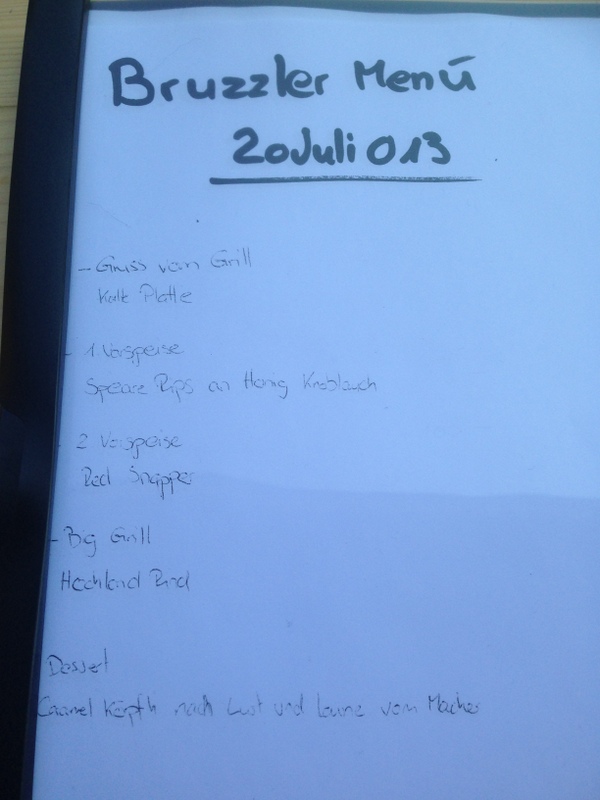 Bruzzler Menú
20 Juli 013
- Gruss vom Grill
Kalt Platte
- 1 Vorspeise
Speare Rips an Honig Knoblauch
- 2 Vorspeise
Red Snapper
- Big Grill
Hochland Rind
Dessert
Caramel Köpfli nach Lust und Laune vom Macher